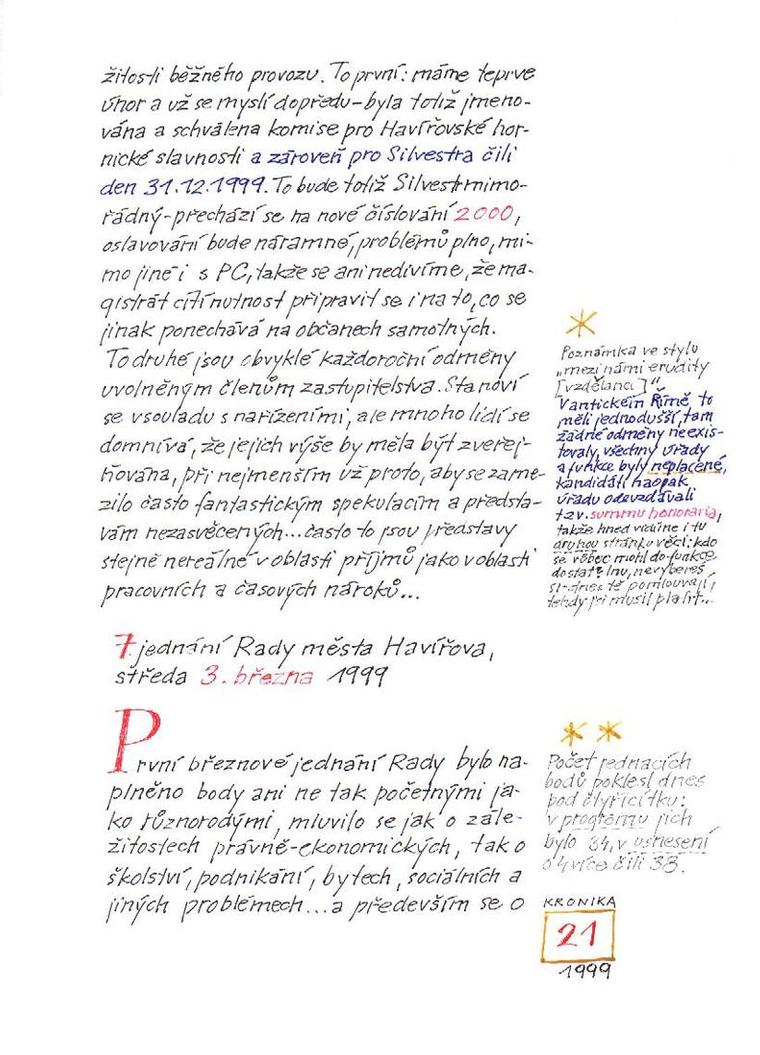 žitosti běžného provozu. To první: máme teprve
únor a už se myslí dopředu – byla totiž jmeno-
vána a schválena komise pro Havířovské hor-
nické slavnosti a zároveň pro Silvestra čili
den 31.12.1999. To bude totiž Silvestr mimo-
řádný – přechází se na nové číslování 2000,
oslavování bude náramné, problémů plno, mi-
mo jiné i s PC, takže se ani nedivíme, že ma-
gistrát cítí nutnost připravit se i na to, co se
jinak ponechává na občanech samotných.
To druhé jsou obvyklé každoroční odměny
uvolněným členům zastupitelstva. Stanoví
se v souladu s nařízeními, ale mnoho lidí se
domnívá, že jejich výše by měla být zveřej-
ňována, při nejmenším už proto, aby se zame-
zilo často fantastickým spekulacím a předsta-
vám nezasvěcených... často to jsou představy
stejně nereálné v oblasti příjmů jako v oblasti
pracovních a časových nároků...
*
Poznámka ve stylu
„mezi námi erudity
[vzdělanci]“
V antickém Římě to
měli jednodušší, tam
žádné odměny neexis-
tovaly, všechny úřady
a funkce byly neplacené,
kandidáti naopak
úřadu odevzdávali
tzv. summu honoraria,
takže hned vidíme i tu
druhou stránku věci: kdo
se vůbec mohl do funkce
dostat? Inu, nevybereš
si – dnes tě pomlouvají,
tehdy jsi musil platit...
7. jednání Rady města Havířova,
středa 3. března 1999
První březnové jednání Rady bylo na-
plněno body ani ne tak početnými ja-
ko různorodými, mluvilo se jak o zále-
žitostech právně-ekonomických, tak o
školství, podnikání, bytech, sociálních a
jiných problémech... a především se o
* *
Počet jednacích
bodů poklesl dnes
pod čtyřicítku:
v programu jich
bylo 34, v usnesení
o 4 více čili 38.
KRONIKA
21
1999